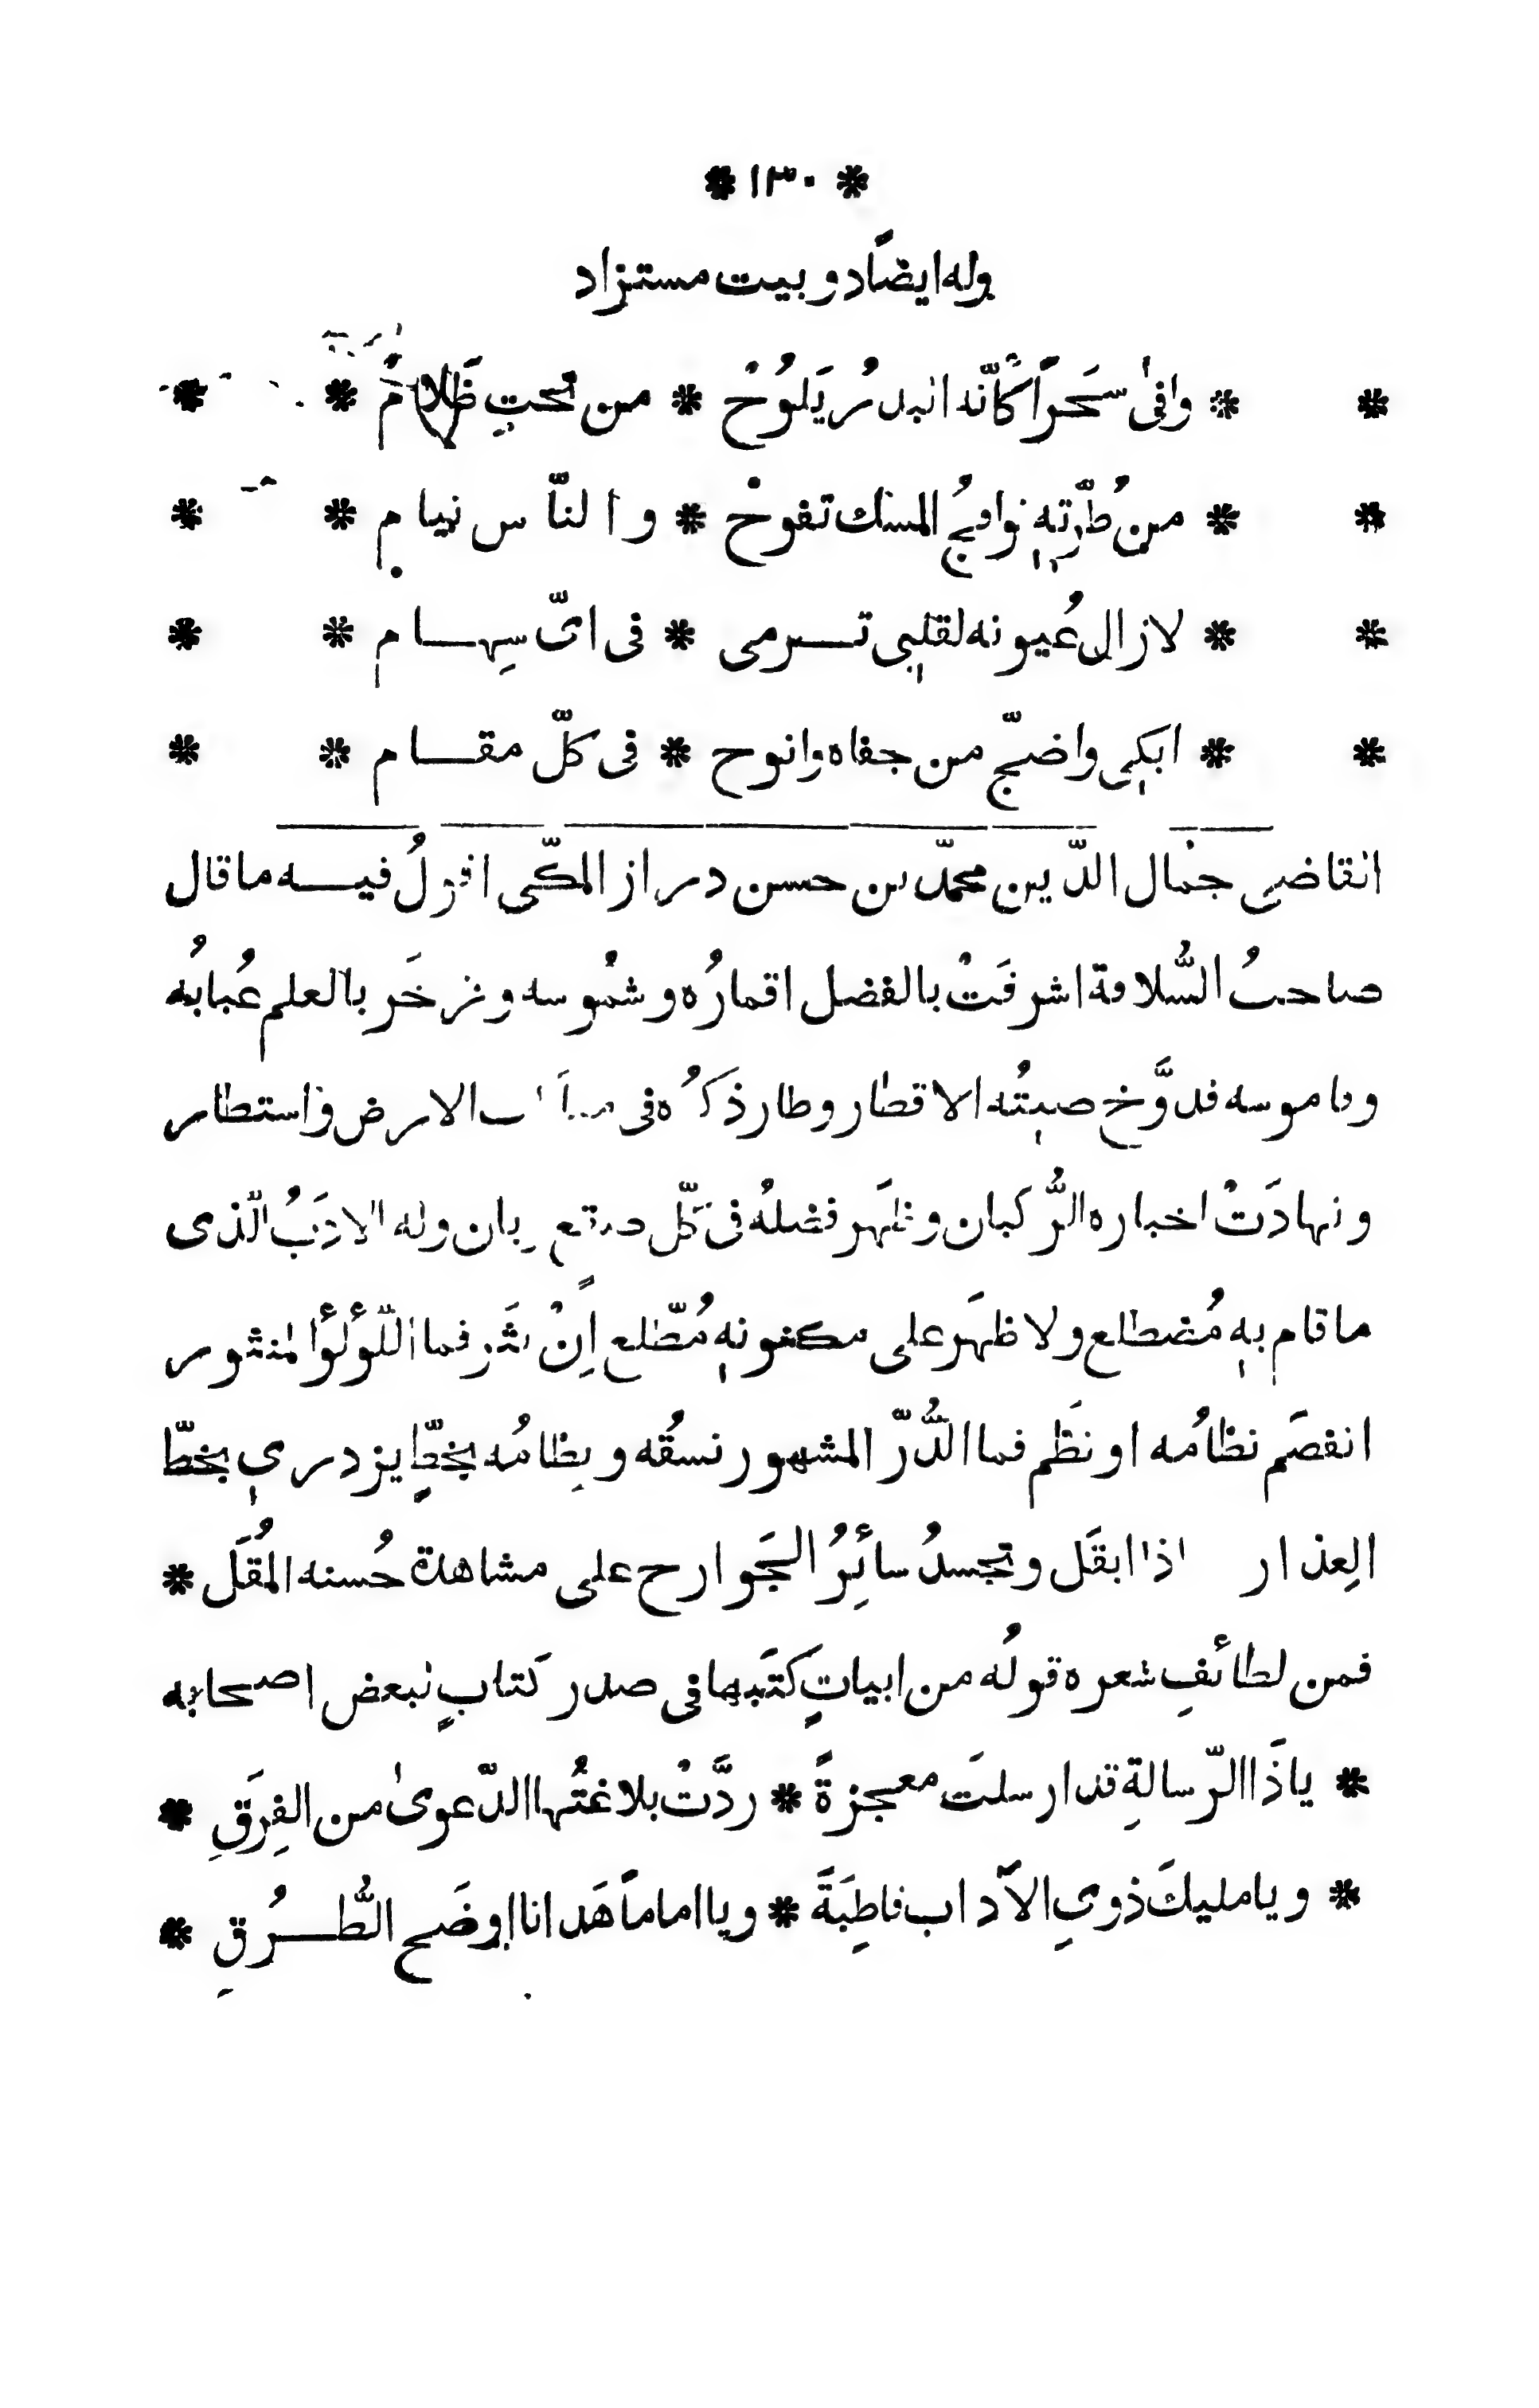 * ١٣٠ *
وله ايضًا دوبيت مستزاد
* * وافىٰ سَحَرًا كأنّه البدرُ يَلوُحْ * من تحتِ ظَلامْ * *
* * من طُرّتهِ نوافجُ المسك تفوحْ * والنّاس نيام * *
* * لازال عُيونه لقلبى ترمى * فى اىّ سِهام * *
* * ابكى واضجّ من جفاه وانوح * فى كلّ مقام * *
القاضى جمال الدّين محمّد بن حسن دراز المكّى اقولُ فيه ما قال
صاحبُ السُّلافة اشرقَتْ بالفضل اقمارُه وشمُوسه وزخَر بالعلم عُبابُه
وقاموسه فدوَّخ صيتُه الاقطار وطار ذكرُه فى الارض واستطار
وتهادَتْ اخباره الرُّكبان وظهَر فضلُه فى كلّ وبان وله الادَبُ الّذى
ما قام بهِ مُضطلع ولا ظهَر على مكنونهِ مُطّلع اِنْ نثَر فما اللّؤلؤ المنثور
انفصَم نظامُه او نظَم فما الدُّرّ المشهور نسقُه ونظامُه بخطٍّ يزدرى بخطّ
العِذار اذا ابقَل وتحسدُ سائِرُ الجَوارح على مشاهدة حُسنه المُقَل *
فمن لطائفِ شعره قولُه من ابياتٍ كتَبها فى صدر كتابٍ لبعض اصحابه
* ياذَا الرّسالةِ قد ارسلتَ معجزةً * ردَّتْ بلاغتُها الدّعوىٰ من الفِرَقِ *
* ويا مليكَ ذوىِ الآداب قاطِبَةً * ويا اماماً هَدانا اوضَح الطُّرُقِ *